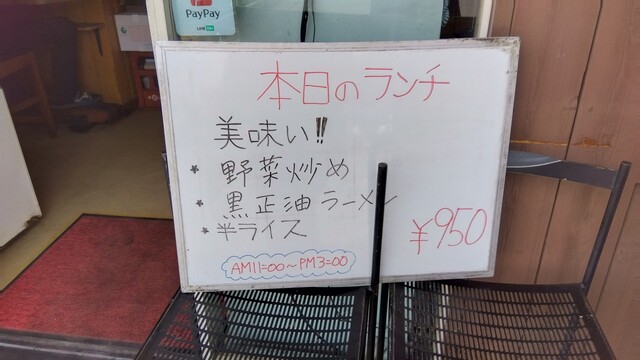 PayPay
本日のランチ
美味い!!
* 野菜炒め
* 黒正油ラーメン
* 半ライス
¥950
AM11=00～PM3=00